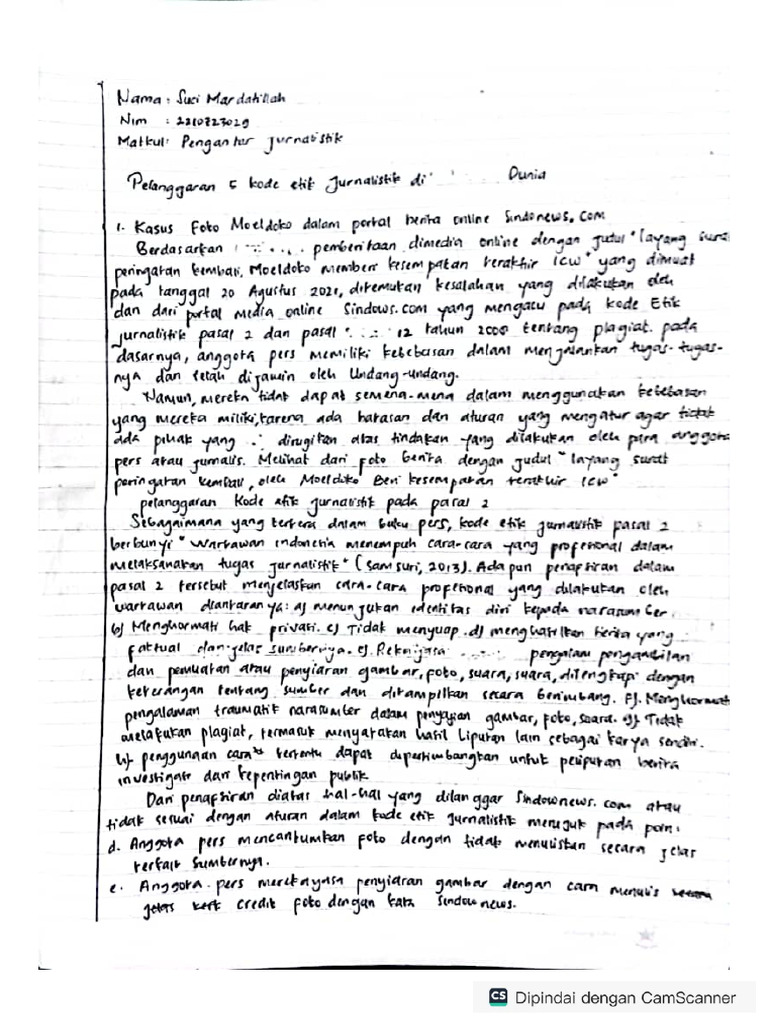 Nama : Suci Mardatillah
Nim : 2210723029
Matkul: Pengantar Jurnalistik
Pelanggaran 5 kode etik Jurnalistik di Dunia
1. Kasus Foto Moeldoko dalam portal berita online Sindonews.com
Berdasarkan pemberitaan dimedia online dengan judul "layang surat
peringatan kembali, Moeldoko memberi kesempatan terakhir ICW" yang dimuat
pada tanggal 20 Agustus 2021, ditemukan kesalahan yang dilakukan oleh
dan dari portal media online Sindows.com yang mengacu pada kode Etik
jurnalistik pasal 2 dan pasal 12 tahun 2000 tentang plagiat. pada
dasarnya, anggota pers memiliki kebebasan dalam menjalankan tugas-tugas-
nya dan telah dijamin oleh Undang-undang.
Namun, mereka tidak dapat semena-mena dalam menggunakan kebebasan
yang mereka miliki, karena ada batasan dan aturan yang mengatur agar tidak
ada pihak yang dirugikan atas tindakan yang dilakukan oleh para anggota
pers atau jurnalis. Melihat dari foto berita dengan judul "layang surat
peringatan kembali, oleh Moeldoko Beri kesempatan terakhir ICW"
pelanggaran Kode etik jurnalistik pada pasal 2
Sebagaimana yang tertera dalam buku pers, kode etik jurnalistik pasal 2
berbunyi "Wartawan indonesia menempuh cara-cara yang profesional dalam
melaksanakan tugas jurnalistik" (Samsuri, 2013). Adapun penafsiran dalam
pasal 2 tersebut menjelaskan cara-cara profesional yang dilakukan oleh
wartawan diantaranya: a) menunjukan identitas diri kepada narasumber.
b) Menghormati hak privasi. c) Tidak menyuap. d) menghasilkan berita yang
faktual dan jelas sumbernya. e). Rekayasa pengambilan
dan pemuatan atau penyiaran gambar, foto, suara, suara, dilengkapi dengan
keterangan tentang sumber dan ditampilkan secara berimbang. F). Menghormati
pengalaman traumatik narasumber dalam penyajian gambar, foto, suara. g) Tidak
melakukan plagiat, termasuk menyatakan hasil liputan lain sebagai karya sendiri.
h) penggunaan cara" tertentu dapat dipertimbangkan untuk peliputan berita
investigasi dan kepentingan publik
Dari penafsiran diatas hal-hal yang dilanggar Sindownews.com atau
tidak sesuai dengan aturan dalam kode etik jurnalistik merujuk pada poin:
d. Anggota pers mencantumkan foto dengan tidak menuliskan secara jelas
terkait Sumbernya.
e. Anggota pers merekayasa penyiaran gambar dengan cara menulis secara
jelas credit foto dengan kata Sindownews.
CS Dipindai dengan CamScanner